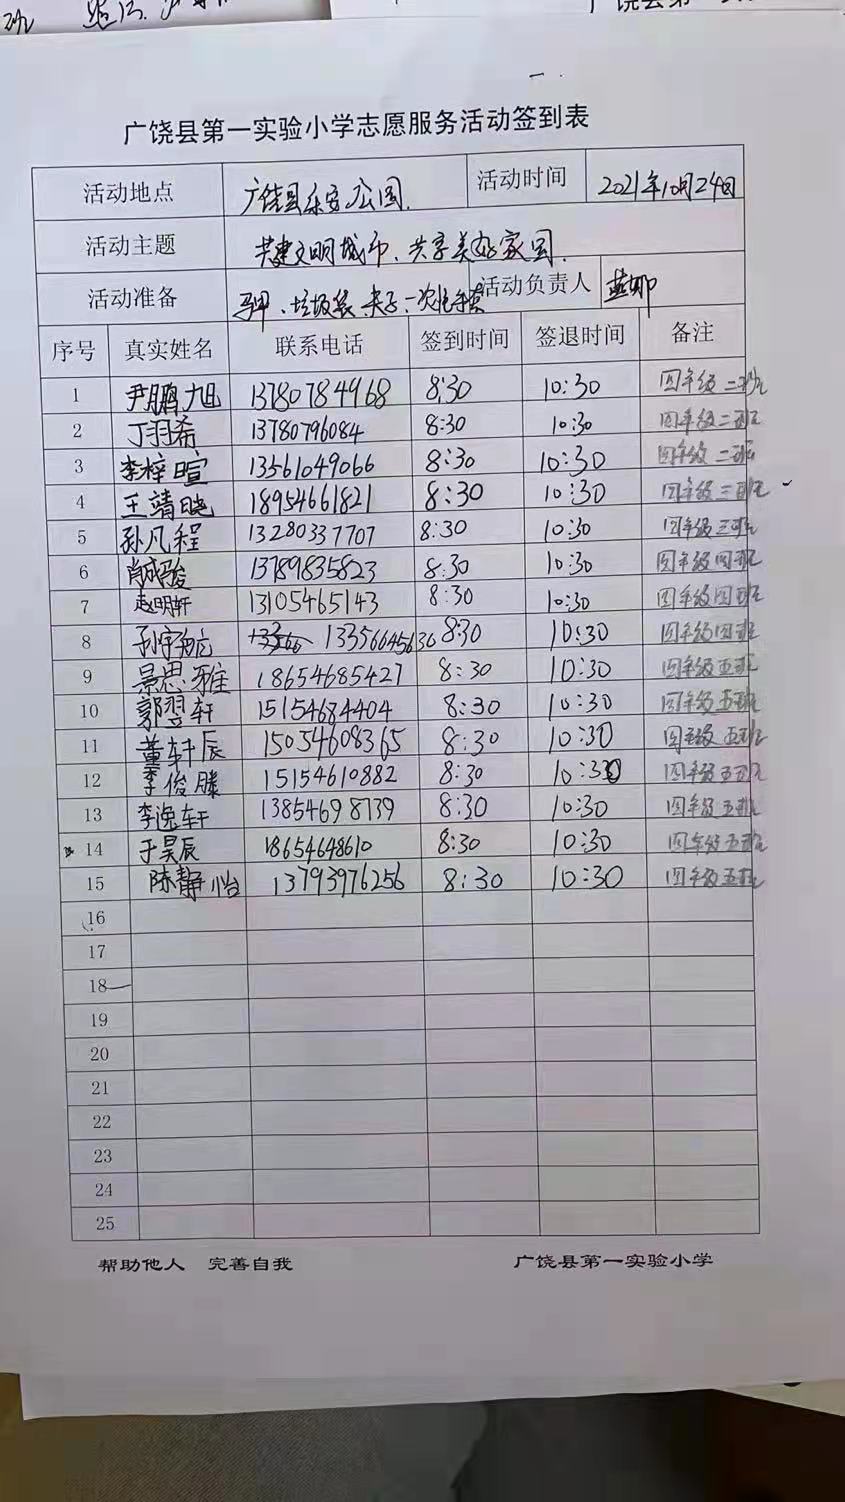 广饶县第一实验小学志愿服务活动签到表
活动地点 广饶县乐安公园. 活动时间 2021年10月24日
活动主题 共建文明城市、共享美好家园.
活动准备 马甲、垃圾袋、夹子、一次性手套 活动负责人
序号 真实姓名 联系电话 签到时间 签退时间 备注
1 尹鹏旭 13780784968 8:30 10:30 四年级二班
2 丁羽希 13780796084 8:30 10:30 四年级二班
3 李梓暄 13561049066 8:30 10:30 四年级二班
4 王靖晓 18954661821 8:30 10:30 四年级三班
5 孙凡程 13280337707 8:30 10:30 四年级三班
6 肖成骏 13789835823 8:30 10:30 四年级四班
7 赵明轩 13105465143 8:30 10:30 四年级四班
8 孙宇航 13356645636 8:30 10:30 四年级四班
9 景思雅 18654685427 8:30 10:30 四年级五班
10 郭翌轩 15154684404 8:30 10:30 四年级五班
11 董轩辰 15054608365 8:30 10:30 四年级五班
12 李俊滕 15154610882 8:30 10:30 四年级五班
13 李逸轩 13854698739 8:30 10:30 四年级五班
14 于昊辰 18654648610 8:30 10:30 四年级五班
15 陈静怡 13793976256 8:30 10:30 四年级五班
16
17
18
19
20
21
22
23
24
25
帮助他人 完善自我 广饶县第一实验小学